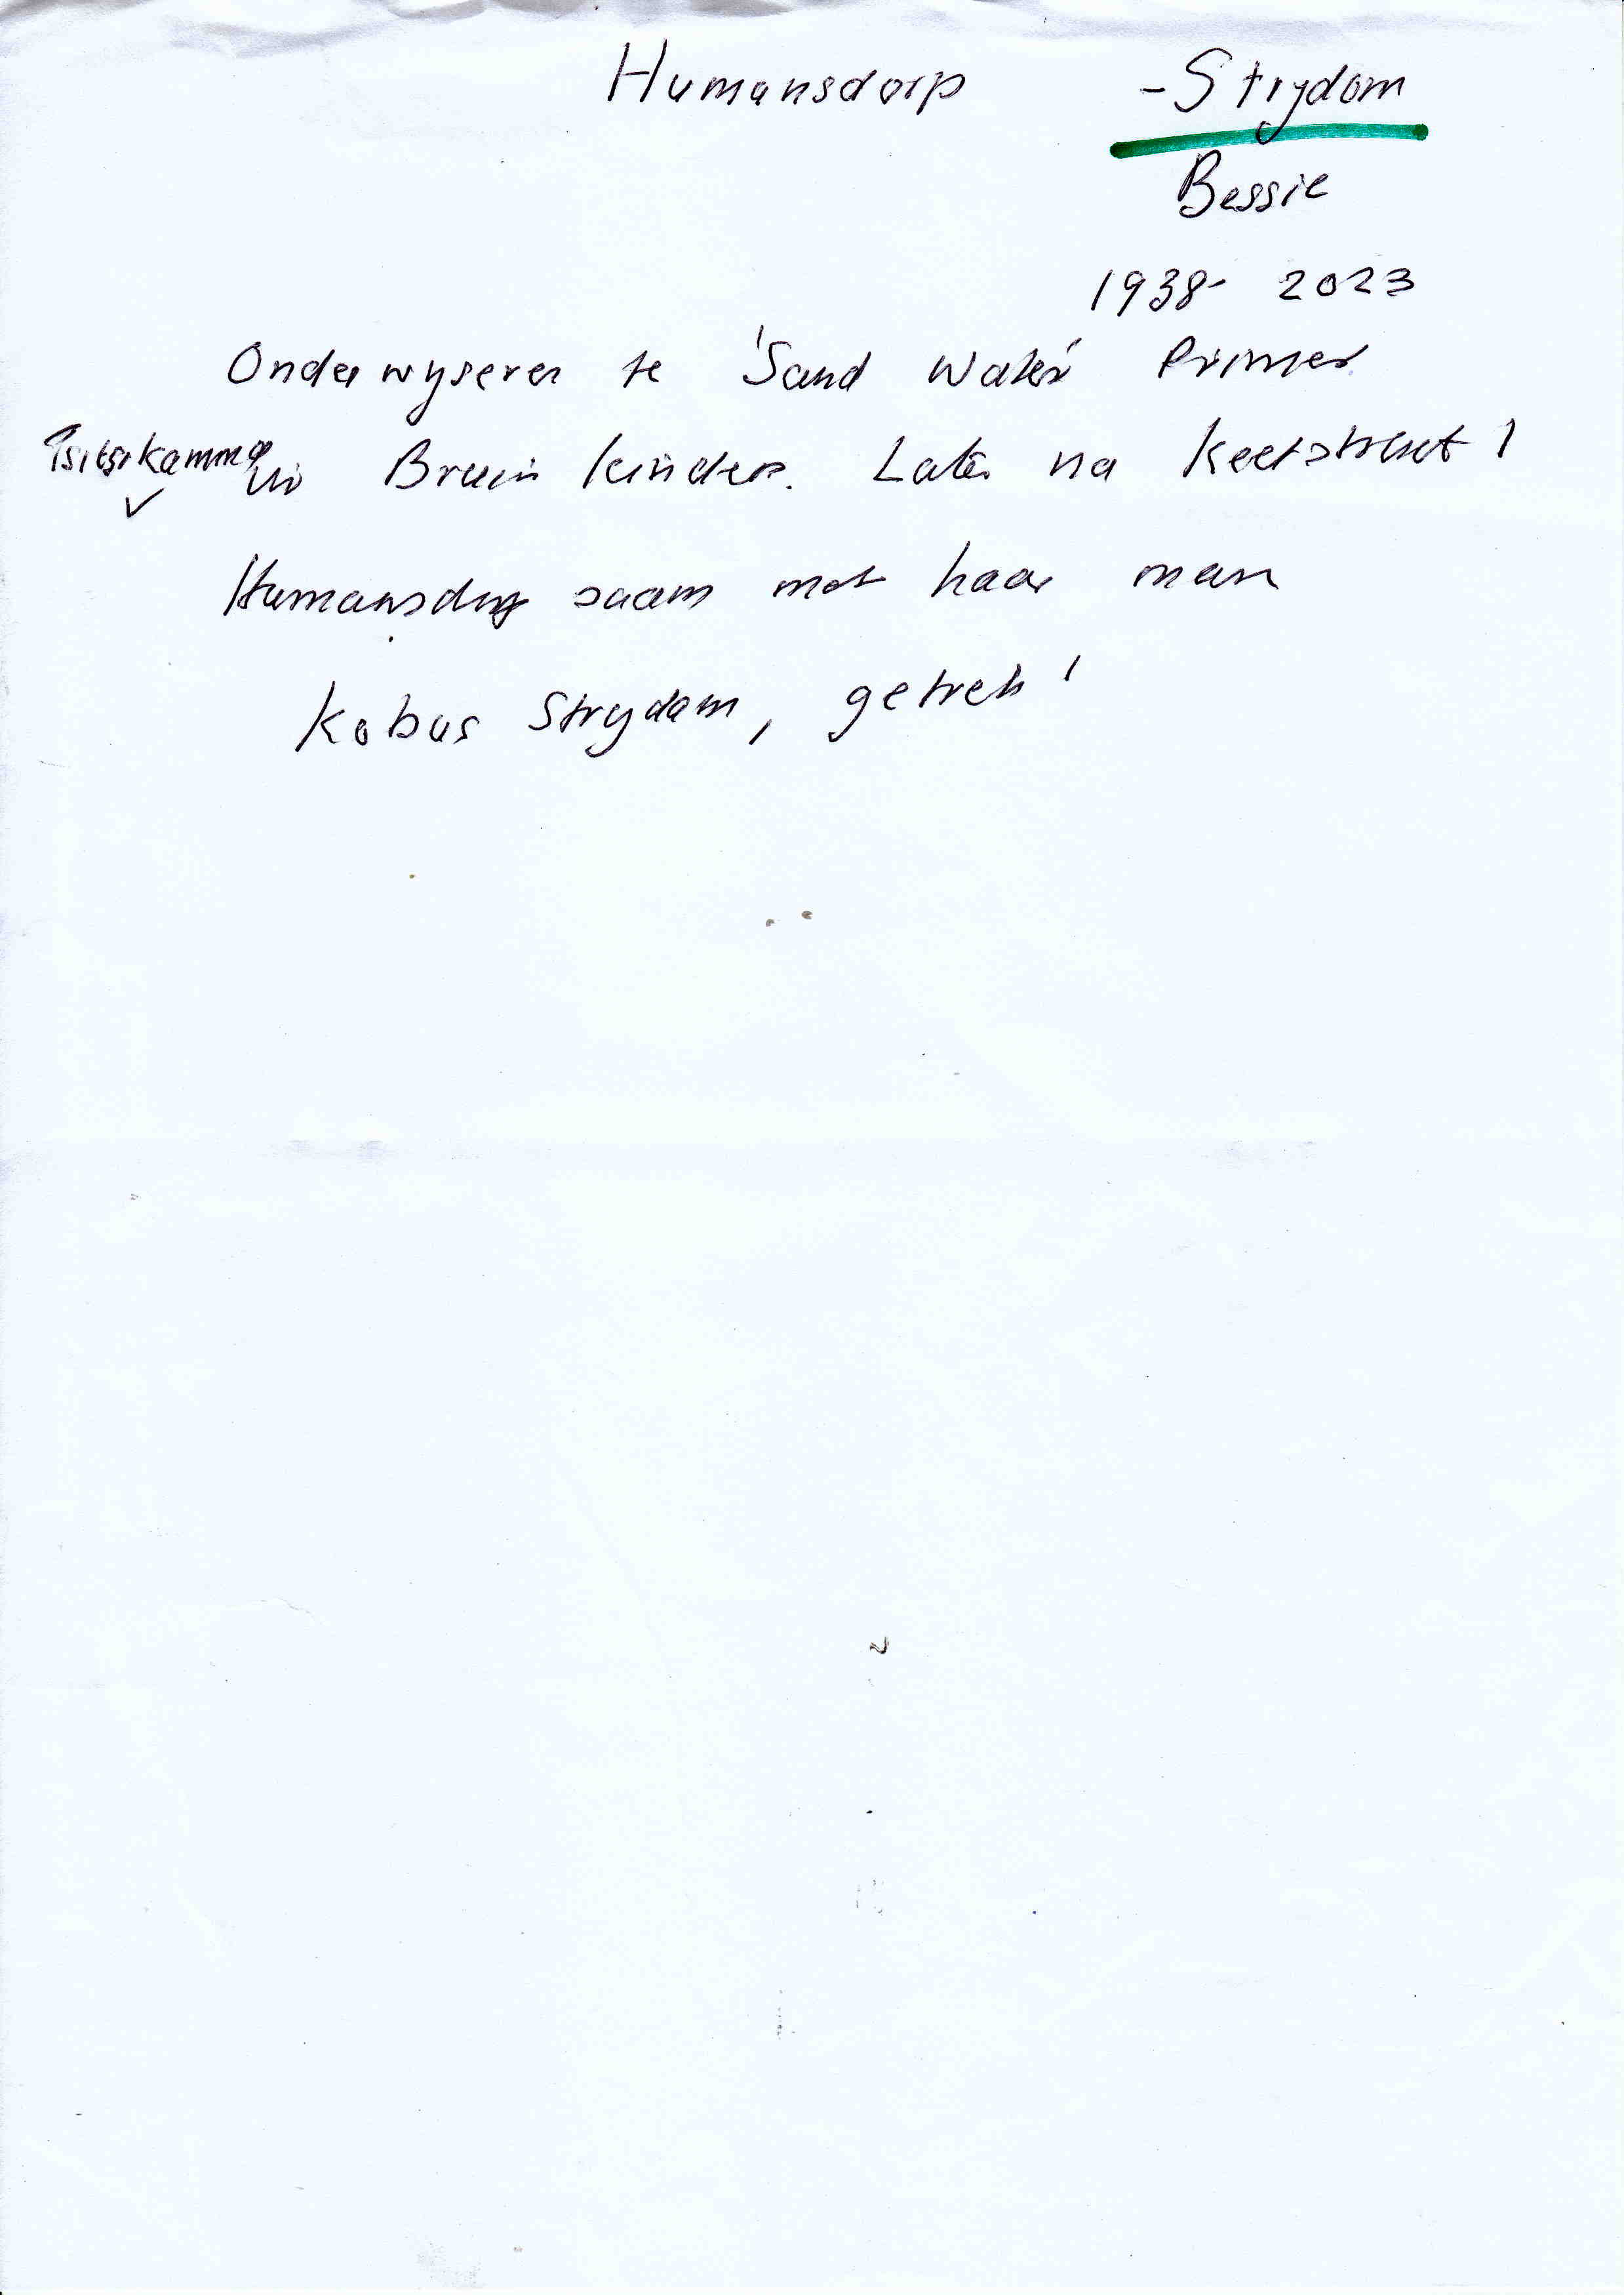 Humansdorp - Strydom
Bessie
1938- 2023
Onderwyseres te 'Sand Water' Primer
Tsitsikamma vir Bruin kinders. Later na Keetstraat 1
Humansdorp saam met haar man
Kobus Strydom, getrek!